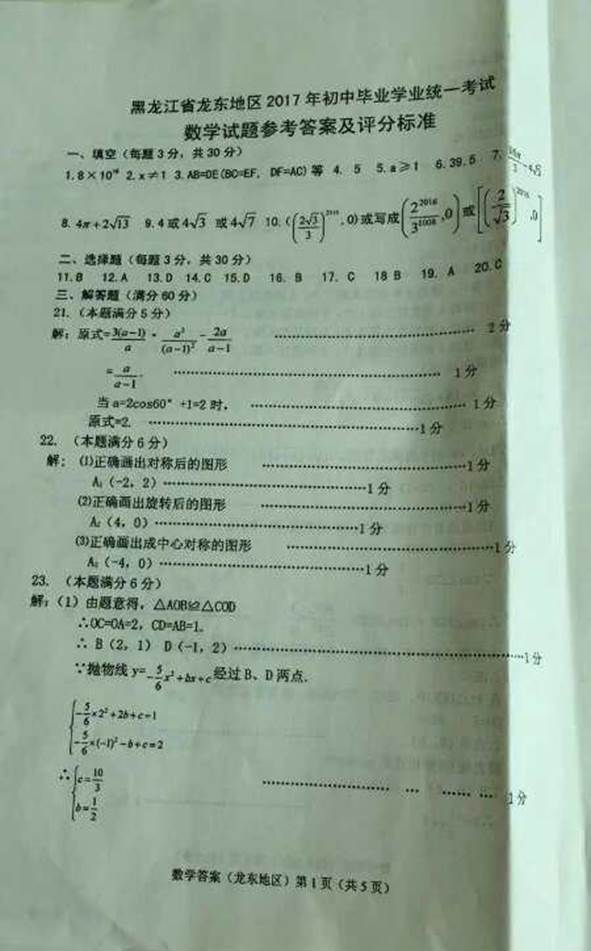 黑龙江省龙东地区2017年初中毕业学业统一考试
数学试题参考答案及评分标准
一、填空（每题3分，共30分）
1.8×10 2.x≠1 3.AB=DE(BC=EF, DF=AC)等 4. 5 5.a≥1 6.39.5 7.
8. 4π+2√13 9.4或4√3 或4√7 10.((2√3/3)^2016,0)或写成(2^2016/3^1008,0)或[(2/√3)^2016,0]
二、选择题（每题3分，共30分）
11.B 12.A 13.D 14.C 15.D 16. B 17. C 18 B 19. A 20.C
三、解答题（满分60分）
21.（本题满分5分）
解：原式=3(a-1)/a · a²/(a-1)² - 2a/(a-1) ………………… 2分
=a/(a-1). ………………… 1分
当a=2cos60°+1=2时, ………………… 1分
原式=2. ………………… 1分
22. （本题满分6分）
解: ⑴正确画出对称后的图形 ………………… 1分
A₁(-2, 2) ………………… 1分
⑵正确画出旋转后的图形 ………………… 1分
A₂(4, 0) ………………… 1分
⑶正确画出成中心对称的图形 ………………… 1分
A₃(-4, 0) ………………… 1分
23. （本题满分6分）
解:（1）由题意得, △AOB≌△COD
∴OC=OA=2, CD=AB=1.
∴ B(2, 1) D(-1, 2) ………………… 1分
∵抛物线 y=-5/6x²+bx+c 经过B、D两点.
{-5/6×2²+2b+c=1
-5/6×(-1)²-b+c=2
∴{c=10/3
b=1/2 ………………… 1分
数学答案（龙东地区）第1页（共5页）